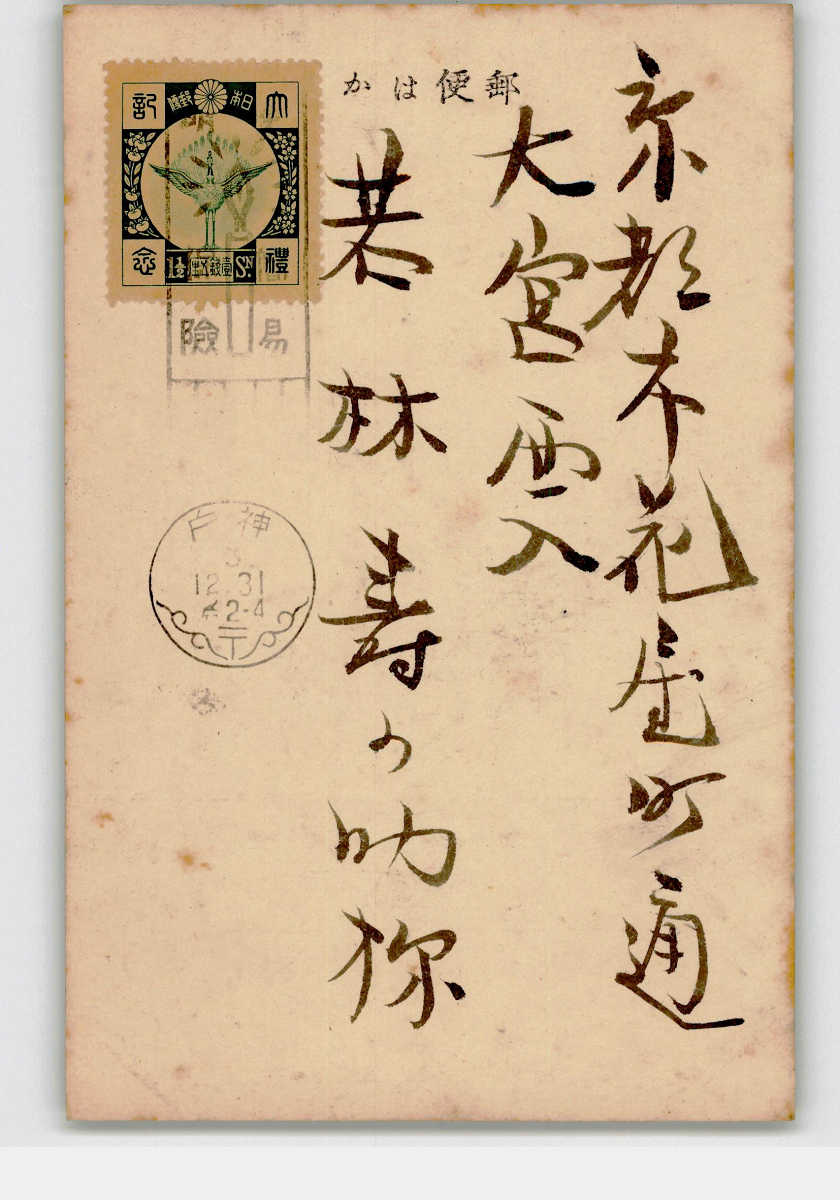 郵便はか
京都市花屋町通
大宮西入
若林寿の助様
大禮記念
日本郵便
1½ 壹錢五厘 SN
易
險
神戸
3
12.31
后2-4
〒